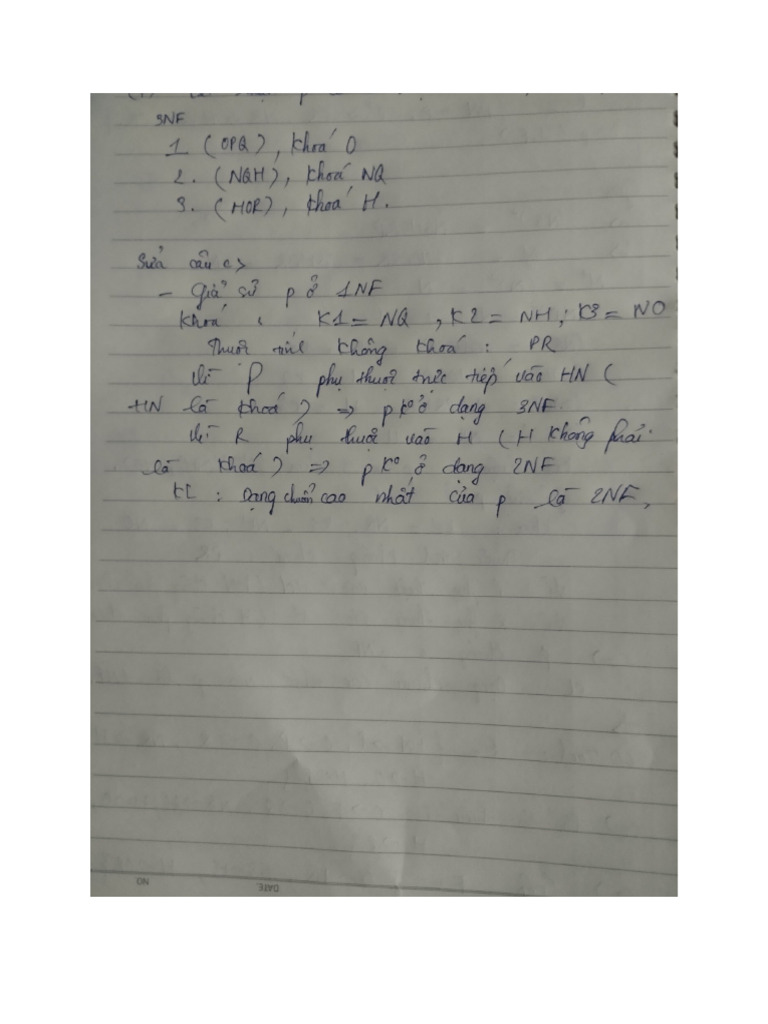 3NF
1 (OPQ), khoá O
2. (NQH), khoá NQ
3. (HOR), khoá H.
Sửa câu c>
- Giả sử p ở 1NF
Khoá : K1 = NQ , K2 = NH ; K3 = NO
Thuộc tính không khoá : PR
Vì P phụ thuộc trực tiếp vào HN (
HN là khoá ) => p kº ở dạng 3NF.
Vì R phụ thuộc vào H ( H không phải
là khoá ) => p kº ở dạng 2NF
KL : Dạng chuẩn cao nhất của p là 2NF,
NO
DATE